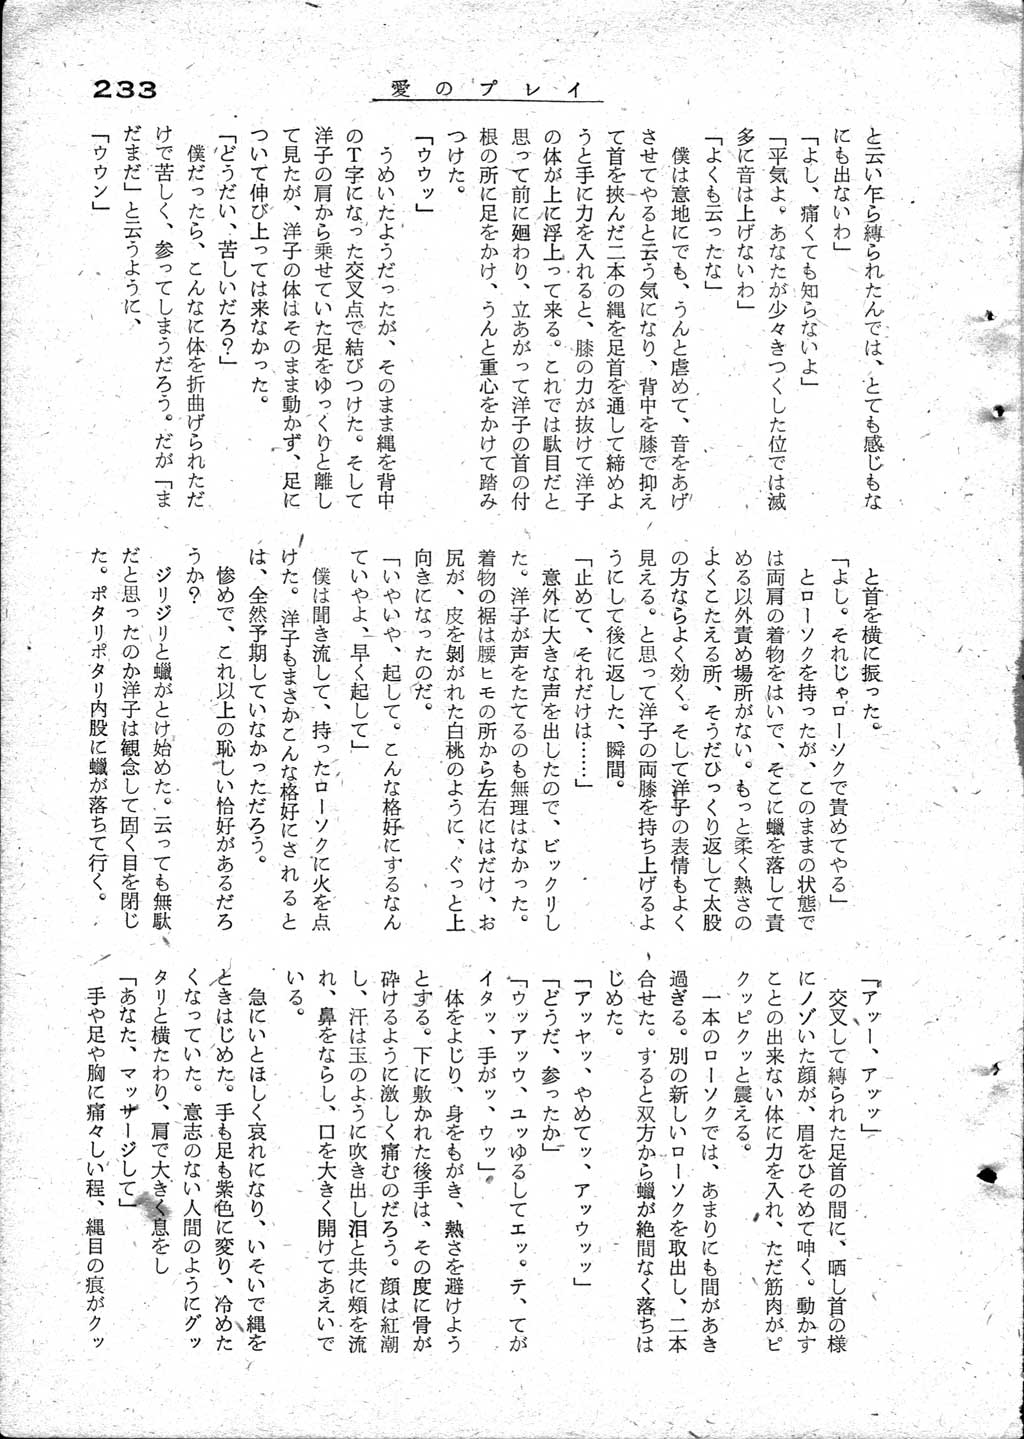 233
愛のプレイ
と云い乍ら縛られたんでは、とても感じもな
にも出ないわ」
「よし、痛くても知らないよ」
「平気よ。あなたが少々きつくした位では滅
多に音は上げないわ」
「よくも云ったな」
僕は意地にでも、うんと虐めて、音をあげ
させてやると云う気になり、背中を膝で抑え
て首を挾んだ二本の縄を足首を通して締めよ
うと手に力を入れると、膝の力が抜けて洋子
の体が上に浮上って来る。これでは駄目だと
思って前に廻わり、立あがって洋子の首の付
根の所に足をかけ、うんと重心をかけて踏み
つけた。
「ウウッ」
うめいたようだったが、そのまま縄を背中
のT字になった交叉点で結びつけた。そして
洋子の肩から乗せていた足をゆっくりと離し
て見たが、洋子の体はそのまま動かず、足に
ついて伸び上っては来なかった。
「どうだい、苦しいだろ?」
僕だったら、こんなに体を折曲げられただ
けで苦しく、参ってしまうだろう。だが「ま
だまだ」と云うように、
「ウウン」
と首を横に振った。
「よし。それじゃローソクで責めてやる」
とローソクを持ったが、このままの状態で
は両肩の着物をはいで、そこに蠟を落して責
める以外責め場所がない。もっと柔く熱さの
よくこたえる所、そうだひっくり返して太股
の方ならよく効く。そして洋子の表情もよく
見える。と思って洋子の両膝を持ち上げるよ
うにして後に返した、瞬間。
「止めて、それだけは……」
意外に大きな声を出したので、ビックリし
た。洋子が声をたてるのも無理はなかった。
着物の裾は腰ヒモの所から左右にはだけ、お
尻が、皮を剝がれた白桃のように、ぐっと上
向きになったのだ。
「いやいや、起して。こんな格好にするなん
ていやよ、早く起して」
僕は聞き流して、持ったローソクに火を点
けた。洋子もまさかこんな格好にされると
は、全然予期していなかっただろう。
惨めで、これ以上の恥しい恰好があるだろ
うか?
ジリジリと蠟がとけ始めた。云っても無駄
だと思ったのか洋子は観念して固く目を閉じ
た。ポタリポタリ内股に蠟が落ちて行く。
「アッー、アッッ」
交叉して縛られた足首の間に、晒し首の様
にノゾいた顔が、眉をひそめて呻く。動かす
ことの出来ない体に力を入れ、ただ筋肉がピ
クッピクッと震える。
一本のローソクでは、あまりにも間があき
過ぎる。別の新しいローソクを取出し、二本
合せた。すると双方から蠟が絶間なく落ちは
じめた。
「アッヤッ、やめてッ、アッウッッ」
「どうだ、参ったか」
「ウッアッウ、ユッゆるしてエッ。テ、てが
イタッ、手がッ、ウッ」
体をよじり、身をもがき、熱さを避けよう
とする。下に敷かれた後手は、その度に骨が
砕けるように激しく痛むのだろう。顔は紅潮
し、汗は玉のように吹き出し泪と共に頬を流
れ、鼻をならし、口を大きく開けてあえいで
いる。
急にいとほしく哀れになり、いそいで縄を
ときはじめた。手も足も紫色に変り、冷めた
くなっていた。意志のない人間のようにグッ
タリと横たわり、肩で大きく息をし
「あなた、マッサージして」
手や足や胸に痛々しい程、縄目の痕がクッ